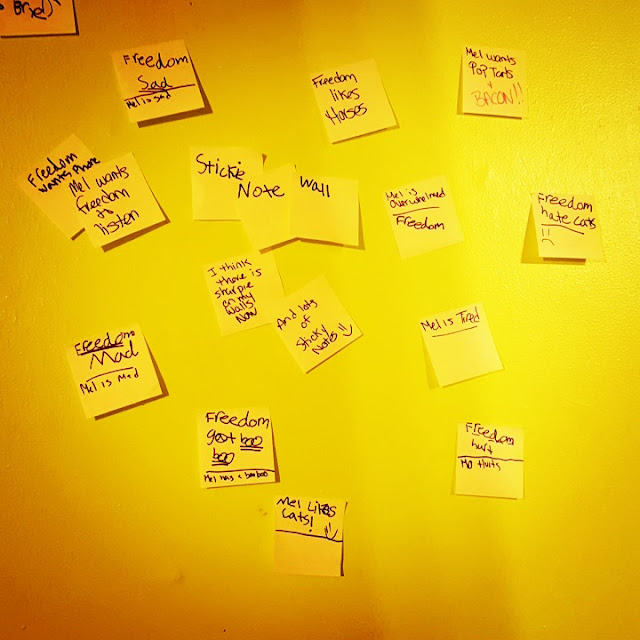 Brief)
Freedom
Sad
Mel is sad
Freedom
likes
Horses
Mel wants
Pop Tarts
+
BACON!!
Freedom
wants Phone
Mel wants
freedom
to
listen
Stickie
Note
Wall
Mel is
Overwhelmed
Freedom
Freedom
hate cats
I think
there is
sharpie
on my
walls
Now
And lots
of
Sticky
Notes
Mel is Tired
Freedom
Mad
Mel is Mad
Freedom
got boo
boo
Mel has a booboo
Freedom
hurt
Mel Likes
Cats!